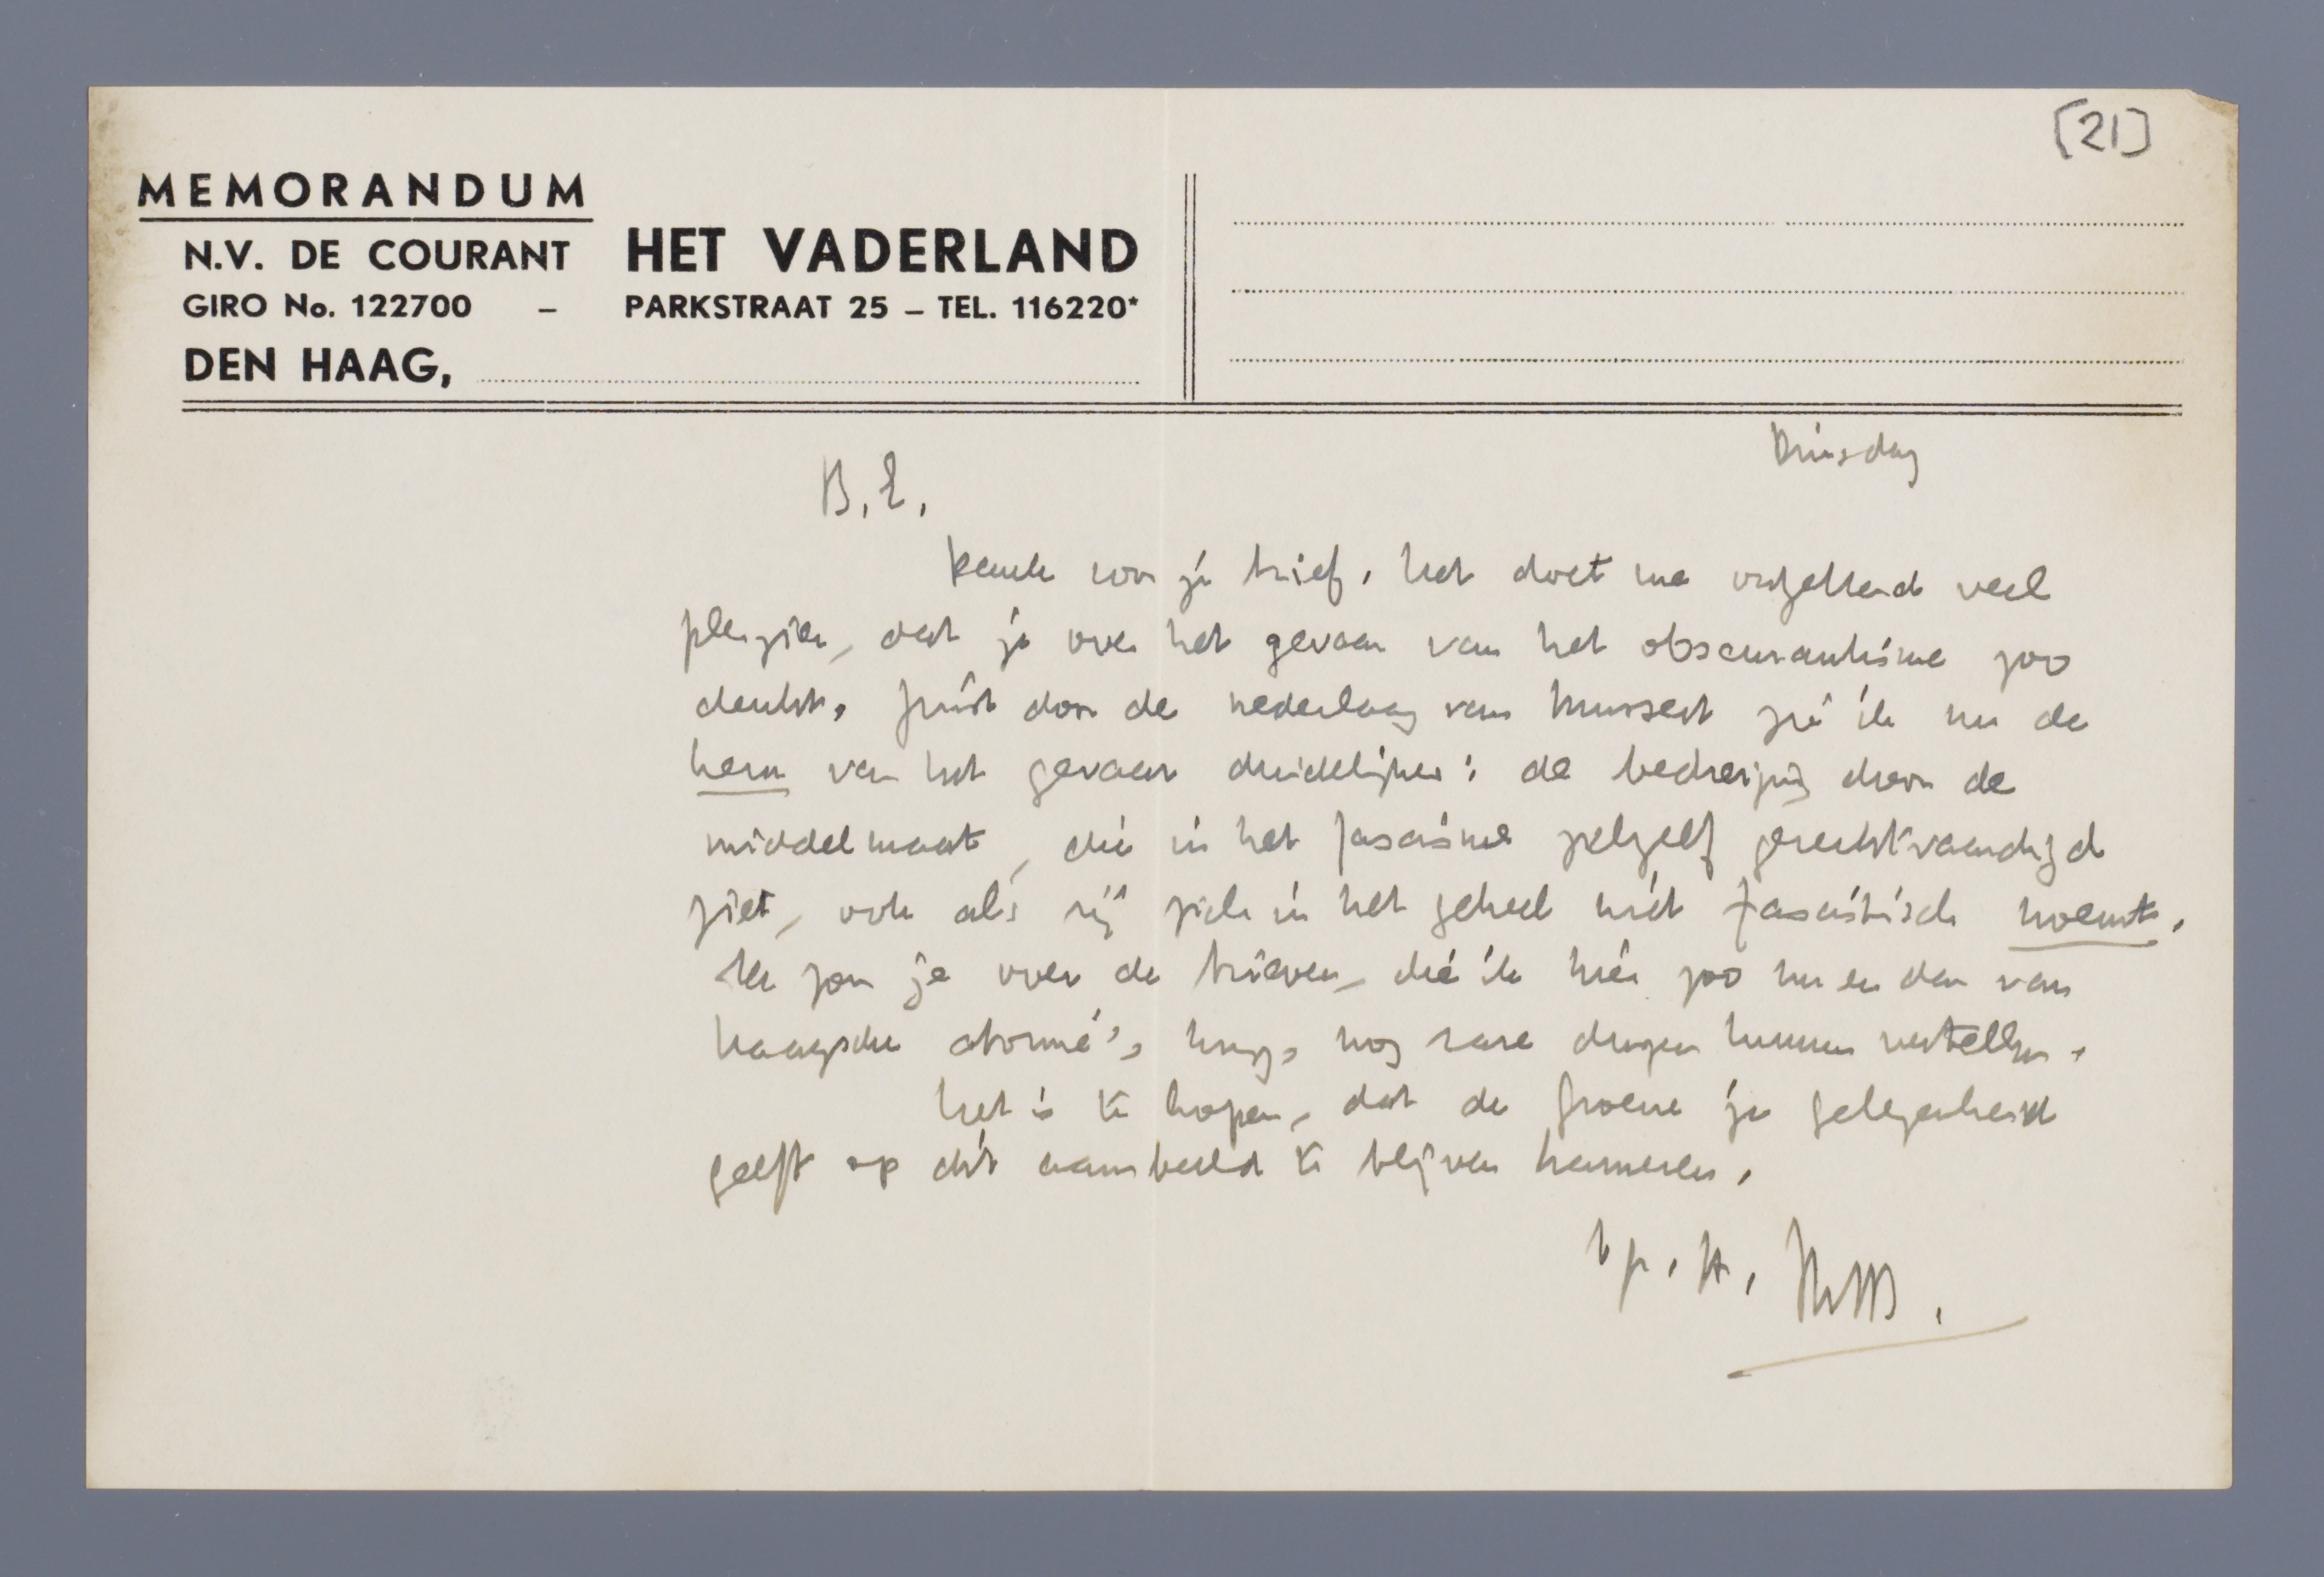 [21]
MEMORANDUM
N.V. DE COURANT HET VADERLAND
GIRO No. 122700 – PARKSTRAAT 25 – TEL. 116220*
DEN HAAG,
Dinsdag
B.E.,
Dank voor je brief. Het doet me ontzettend veel
plezier, dat je over het gevaar van het obscurantisme zoo
denkt. Juist door de nederlaag van Mussert zie ik nu de
kern van het gevaar duidelijker: de bedreiging door de
middelmaat, die in het fascisme zelfs gerechtvaardigd
ziet, ook als zij zich in het geheel niet fascistisch noemt.
Ik zou je over de brieven, die ik hier zoo nu en dan van
Haagsche abonné's krijg, nog rare dingen kunnen vertellen.
Het is te hopen, dat de Groene je gelegenheid
geeft op dit aambeeld te blijven hameren.